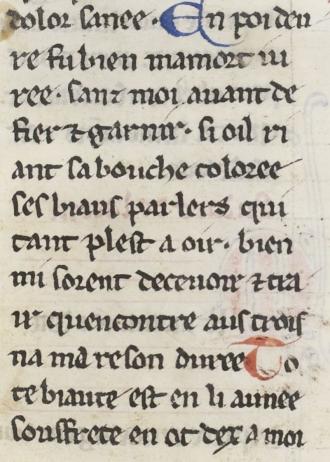 dolor sanee · En poi deu
re fu bien ma mort iu
ree · sanz moi auant de
fier ⁊ garnir · si oil ri
ant sa bouche coloree
ses biaus parlers qui
tant plest a oir · bien
mi sorent deceuoir ⁊ tra
ir quencontre aus trois
na ma reson duree To
te biaute est en li aunee
souffrete en ot dex a moi